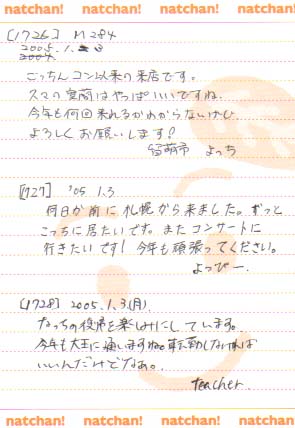 natchan! natchan! natchan! natchan!
[1726] M284
2005.1.3
2004.
ごっちんコン以来の来店です。
スマの空間はやっぱいいですね。
今年も何回来れるかわからないけど
よろしくお願いします!
留萌市 よっち
[727] '05 1.3
何日か前に札幌から来ました。ずっと
こっちに居たいです。またコンサートに
行きたいです! 今年も頑張ってください。
よっぴー.
[1728] 2005.1.3.(月)
なっちの復帰を楽しみにしています。
今年も大王に通いますね。転勤しなければ
いいんだけどなあ。
teacher.
natchan! natchan! natchan! natchan!